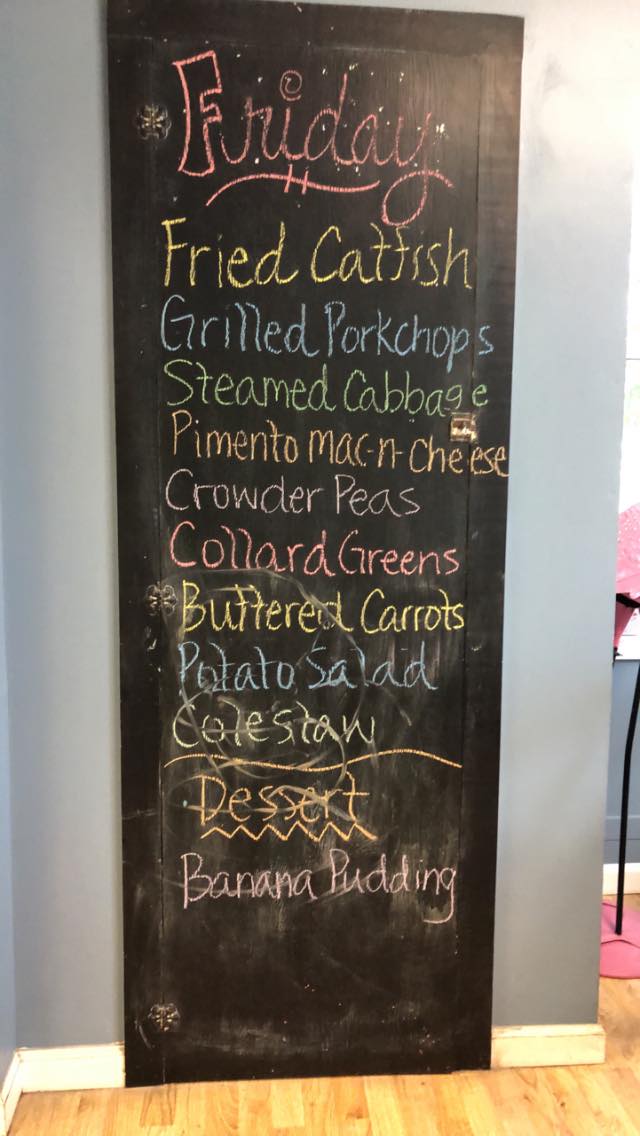 Friday
Fried Catfish
Grilled Porkchops
Steamed Cabbage
Pimento mac-n-cheese
Crowder Peas
Collard Greens
Buttered Carrots
Potato Salad
Coleslaw
Dessert
Banana Pudding